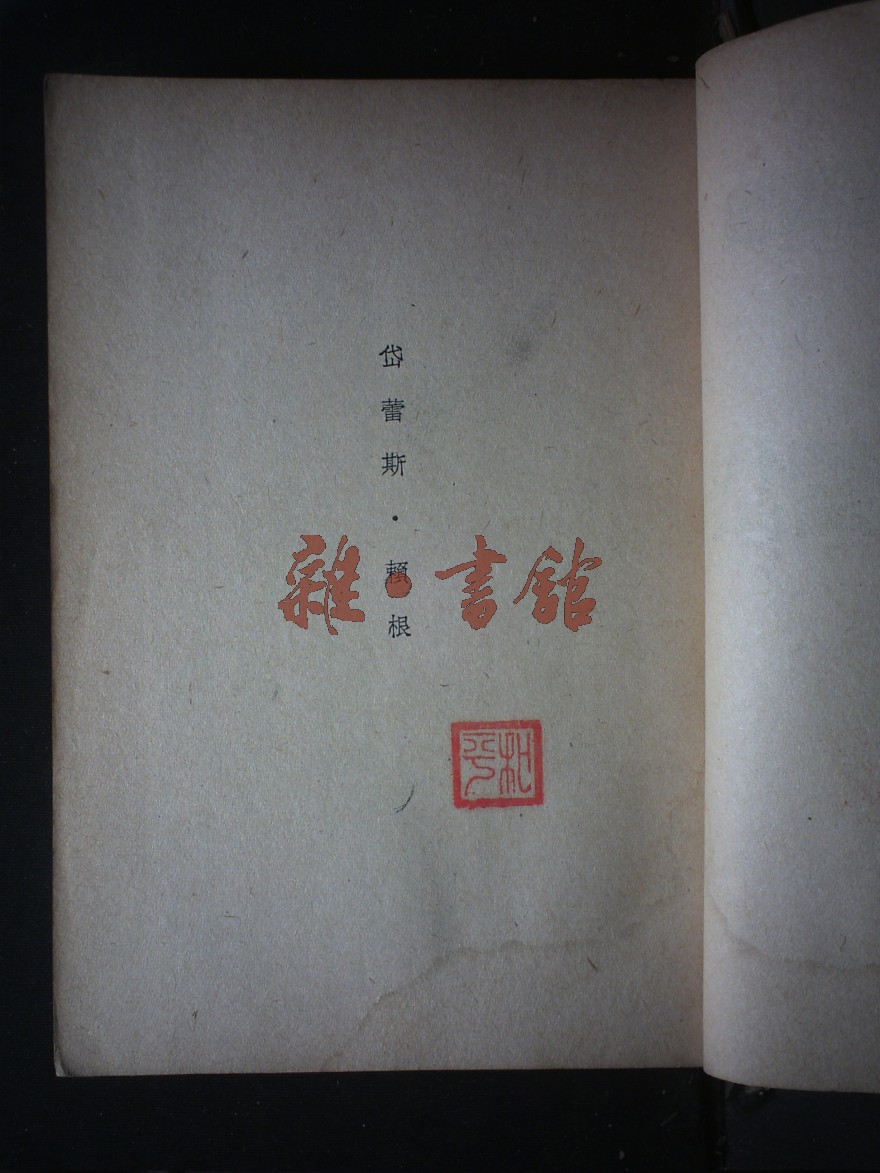 岱蕾斯·賴根
雜·書館
和平